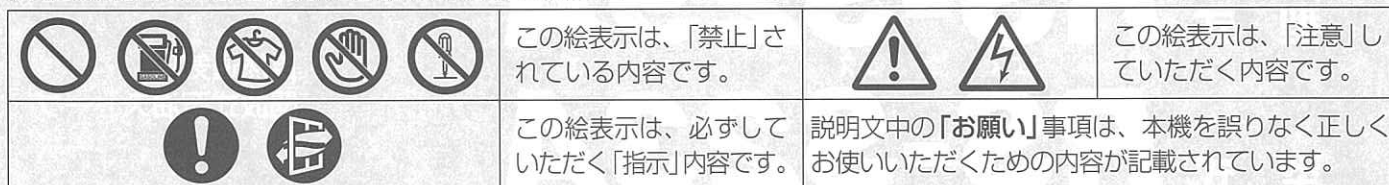 GASOLINE
この絵表示は、「禁止」さ
れている内容です。
この絵表示は、「注意」し
ていただく内容です。
この絵表示は、必ずして
いただく「指示」内容です。
説明文中の「お願い」事項は、本機を誤りなく正しく
お使いいただくための内容が記載されています。